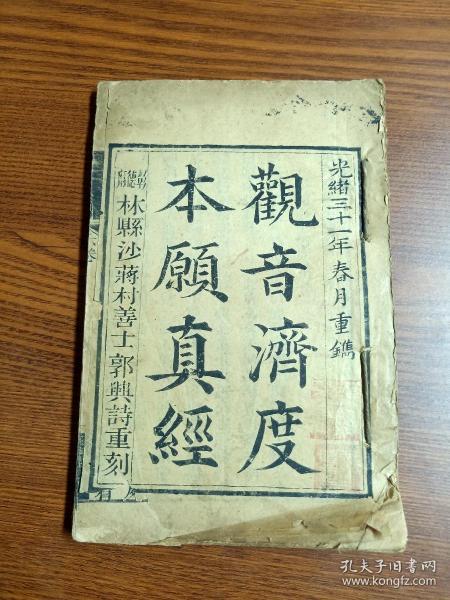 光緒三十一年春月重鐫
觀音濟度
本願真經
林縣沙蔣村善士郭興詩重刻
孔夫子旧书网
www.kongfz.com